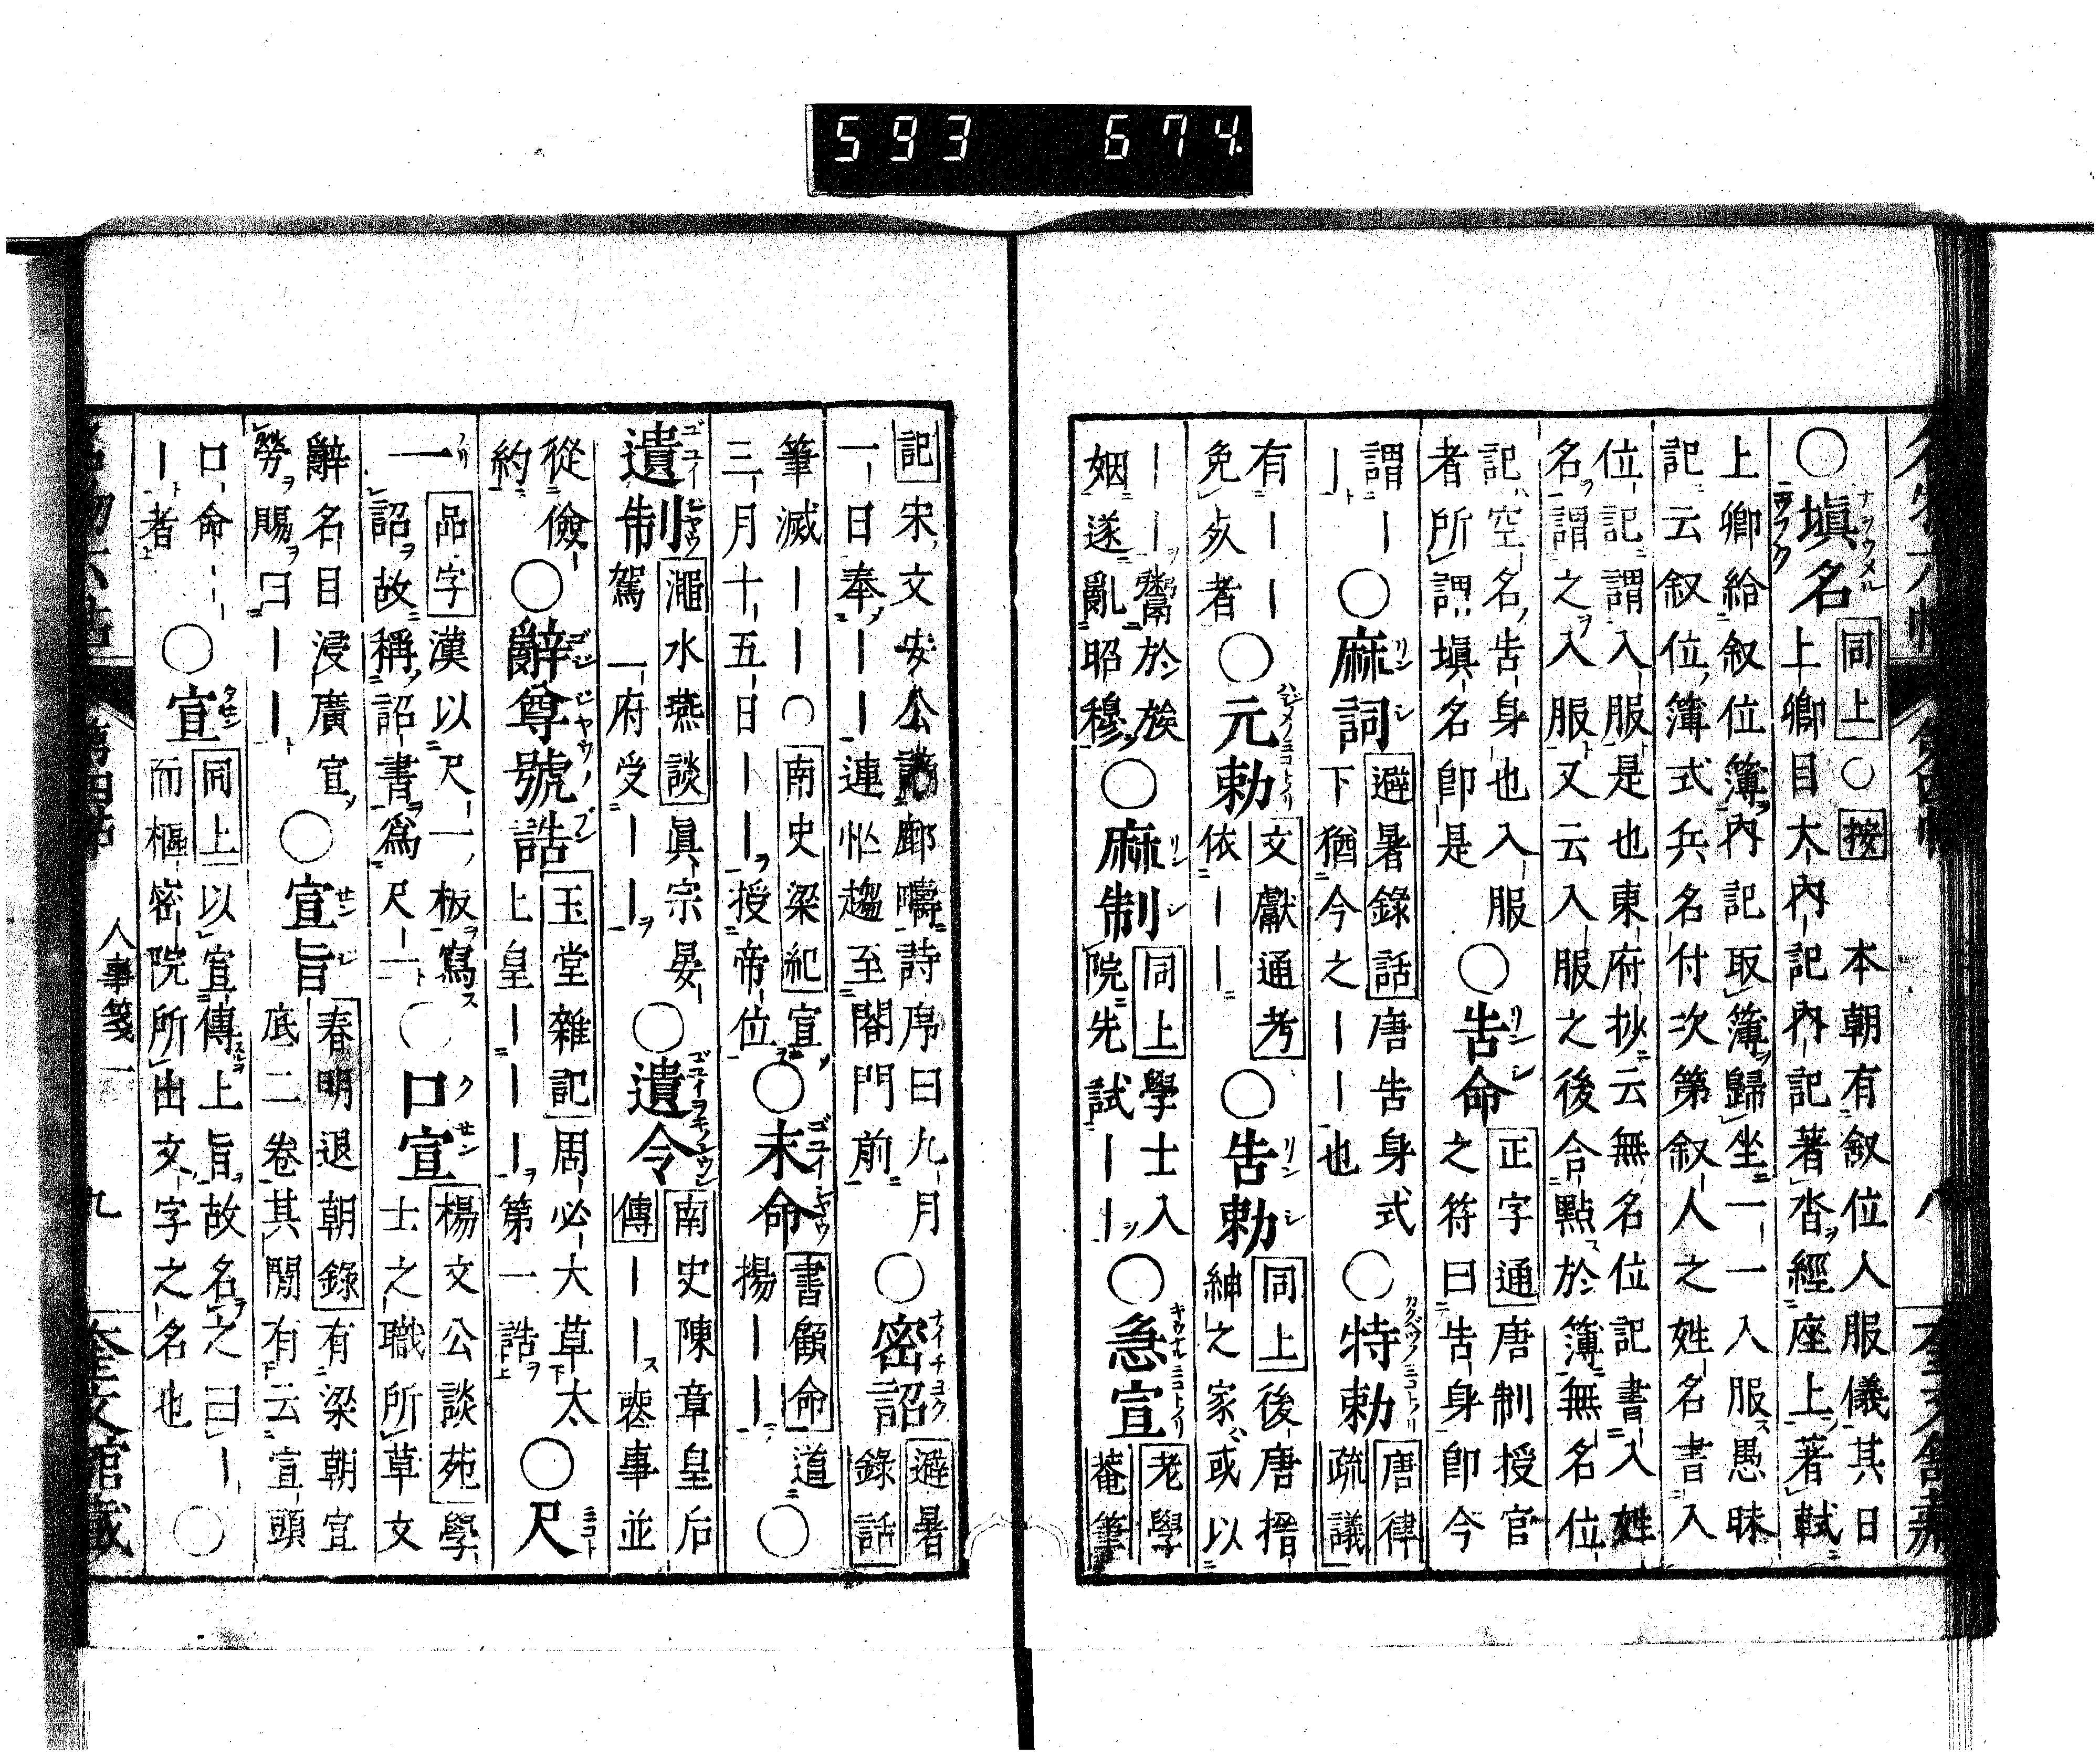 593 674.
○塡名 同上○按 本朝有叙位入服儀其日
上卿目大內記內記著沓經座上著軾
上卿給叙位簿內記取簿歸坐一一入服愚昧
記云叙位簿式兵名付次第叙人之姓名書入
位記謂入服是也東府抄云無名位記書入姓
名謂之入服又云入服之後合點於簿無名位
記空名告身也入服
者所謂塡名卽是
○告命 正字通唐制授官
之符曰告身卽今
謂一
一
○麻詞 避暑錄話唐告身式
下猶今之一一也
○特勅 唐律
疏議
有一一
免死者
○元勅 文獻通考
依一一
○告勅 同上後唐搢
紳之家或以
一一鬻於族
姻遂亂昭穆
○麻制 同上學士入
院先試一一
○急宣 老學
菴筆
記宋文安公 鄜疇詩序曰九月
一日奉一一連忙趨至閤門前
○密詔 避暑
錄話
筆滅一一○南史梁紀宣
三月十五日一一授帝位
○末命 書顧命道
揚一一
○
遺制 澠水燕談眞宗晏
駕一府受一一
○遺令 南史陳章皇后
傳一一喪事並
從儉
約
○辭尊號誥 玉堂雜記周必大草太
上皇一一一一第一誥
○尺
一 品字漢以尺一板寫
詔故稱詔書爲尺一
○口宣 楊文公談苑學
士之職所草文
辭名目浸廣宣
勞賜曰一一
○宣旨 春明退朝錄有梁朝宣
底二卷其閒有云宣頭
口命一
一者
○宣 同上以宣傳上旨故名之曰一
而樞密院所出文字之名也
○
名物六帖 第四帖 人事箋一 九 奎文館藏